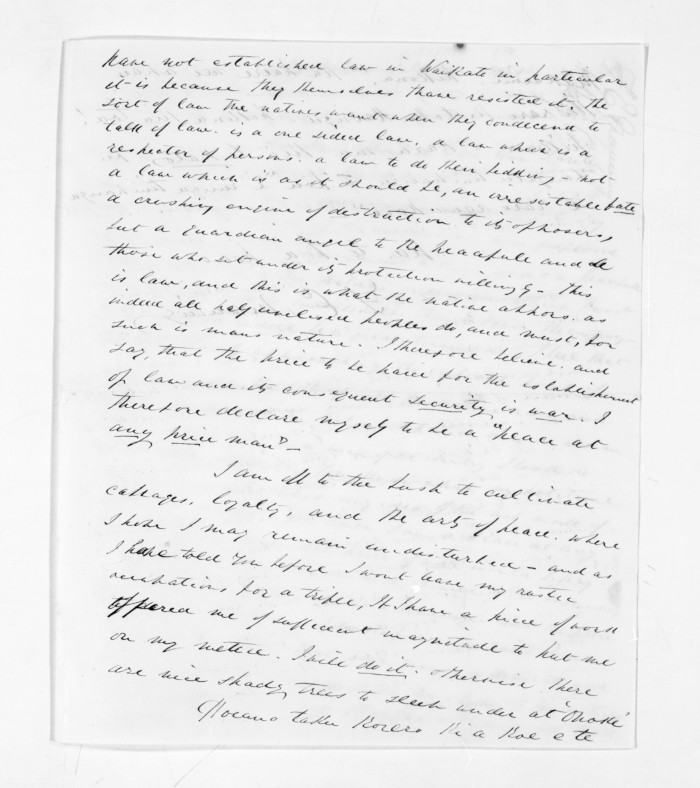 have not established law in Waikato in particular
it is because they themselves have resisted it; the
sort of law the natives want when they condecend to
talk of law. is a one sided law. a law which is a
respecter of persons. a law to do their bidding – not
a law which is as it should be, an irresistable fate
a crushing engine of destruction to its opposers,
but a guardian angel to the peacefule and
those who sit under its protection willingly – this
is law, and this is what the native abhors. as
indeed all half civilised peoples do, and must, for
such is mans nature. I therefore believe. and
say, that the price to be paid for the establishment
of law and its consequent security is war. I
therefore declare myself to be a "peace at
any price man" –
I am off to the bush to cultivate
cabbages, loyalty, and the arts of peace. where
I hope I may remain undisturbed – and as
I have told you before I wont leave my rustic
occupations for a trifle, If I have a piece of work
offered me of sufficent magnitude to put me
on my mettle. I will do it. otherwise there
are nice shady trees to sleep under at "Onoke"
Noeano taku Korero Ki a Koe e te